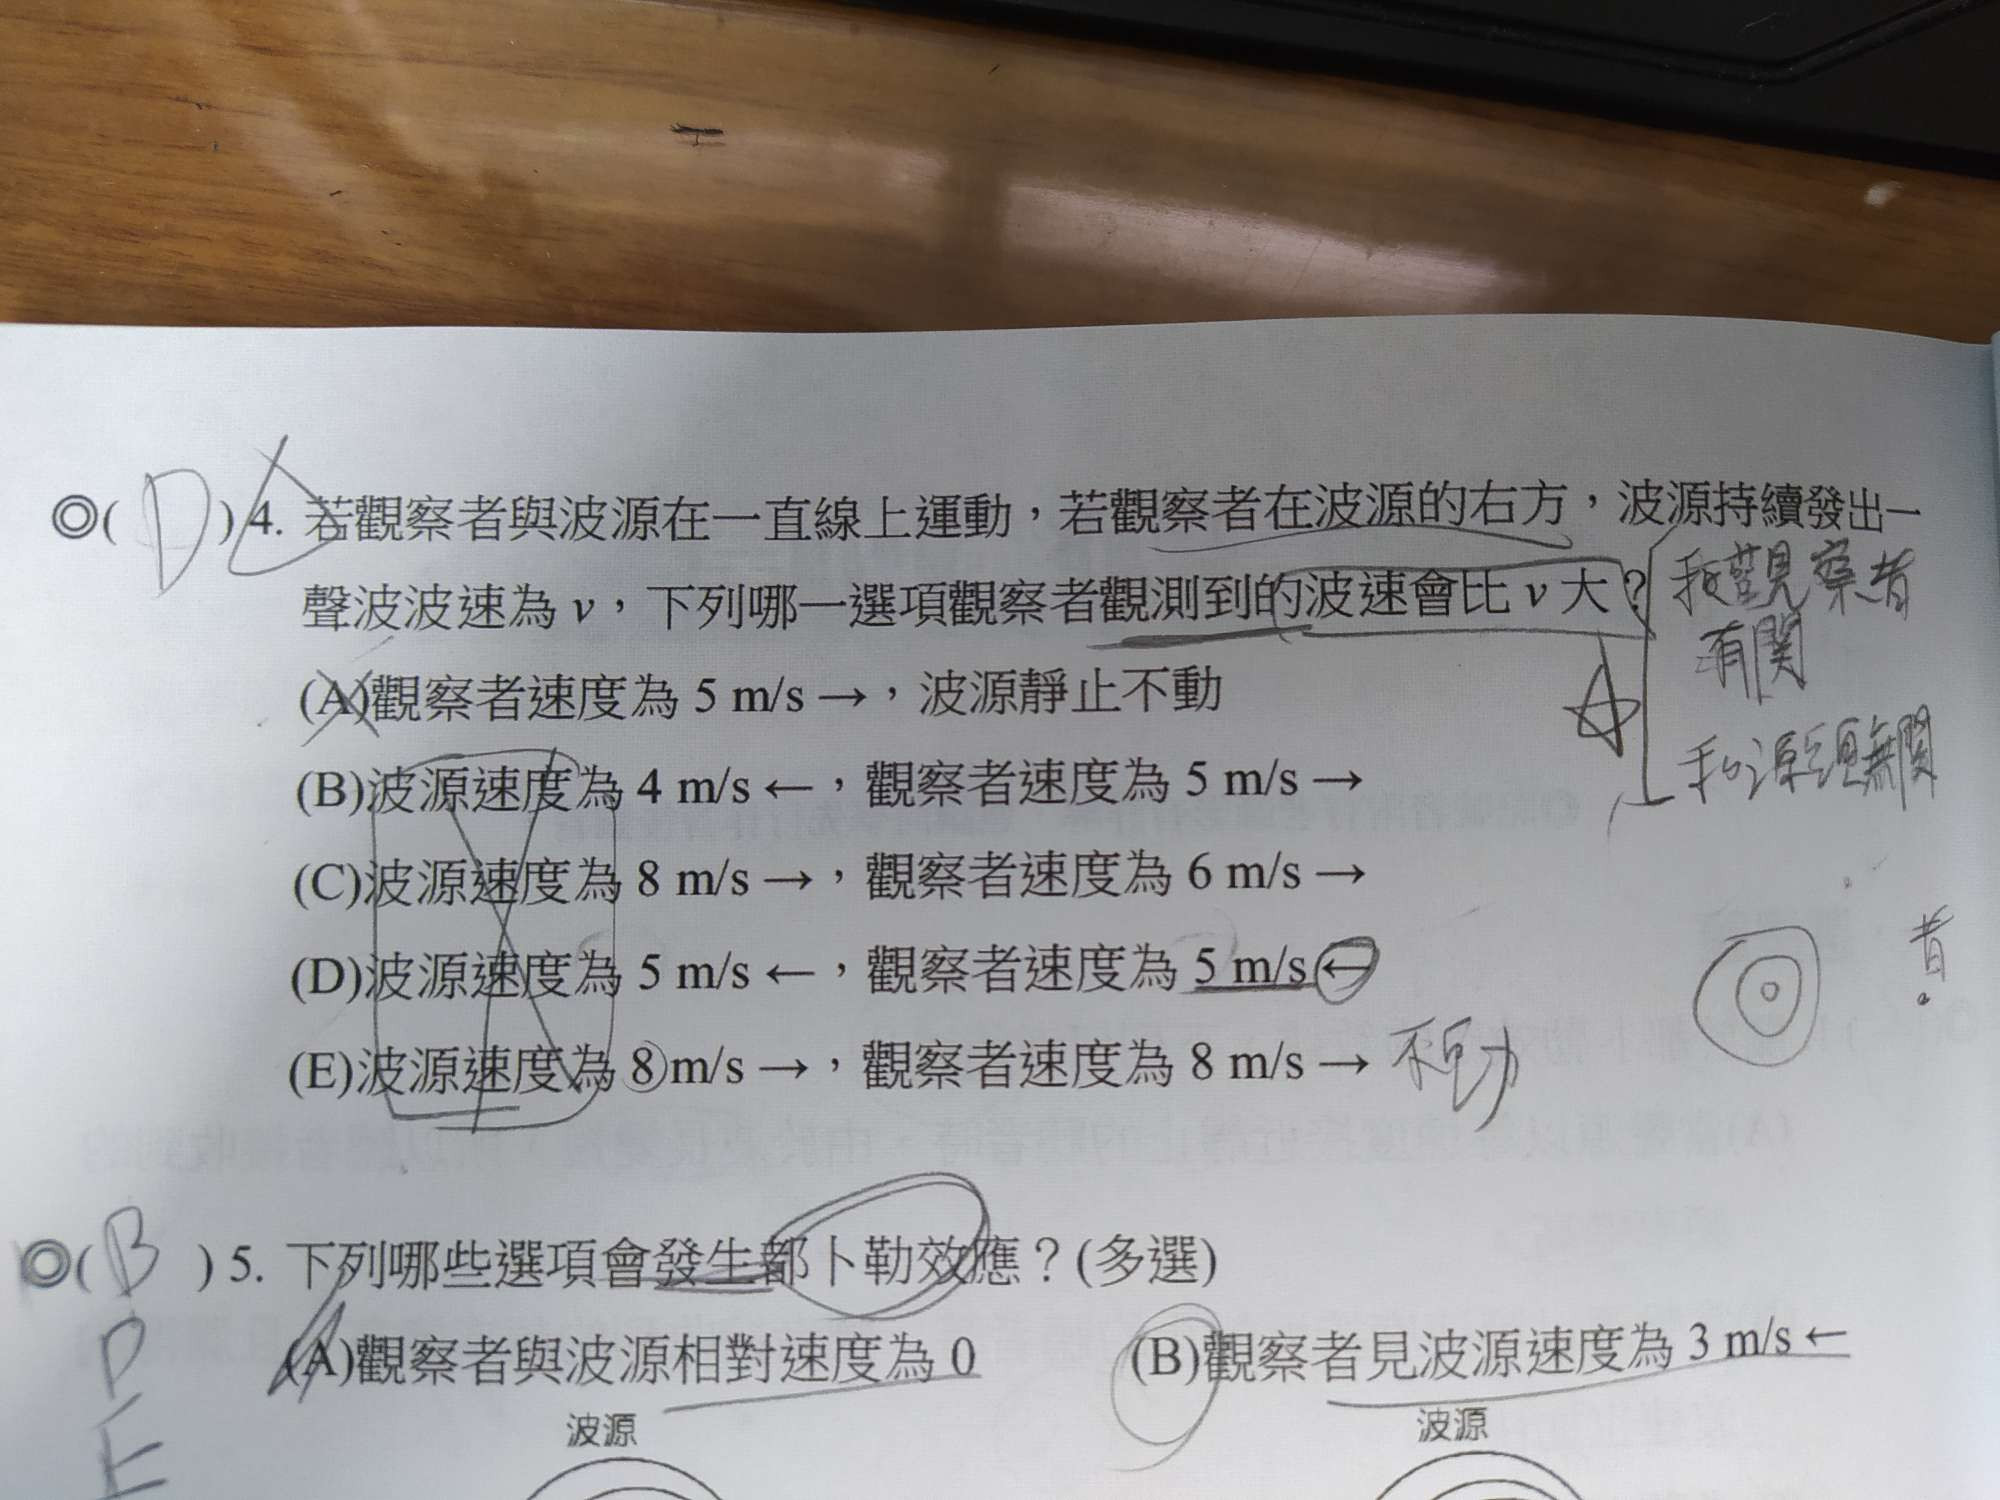 ◎( D ) 4. 若觀察者與波源在一直線上運動，若觀察者在波源的右方，波源持續發出一
聲波波速為 v，下列哪一選項觀察者觀測到的波速會比 v 大？
和觀察者
有関
和源頭無関
(A)觀察者速度為 5 m/s →，波源靜止不動
(B)波源速度為 4 m/s ←，觀察者速度為 5 m/s →
(C)波源速度為 8 m/s →，觀察者速度為 6 m/s →
(D)波源速度為 5 m/s ←，觀察者速度為 5 m/s ←
(E)波源速度為 8 m/s →，觀察者速度為 8 m/s → 不動
◎( B ) 5. 下列哪些選項會發生都卜勒效應？(多選)
D
E
(A)觀察者與波源相對速度為 0 (B)觀察者見波源速度為 3 m/s ←
波源 波源